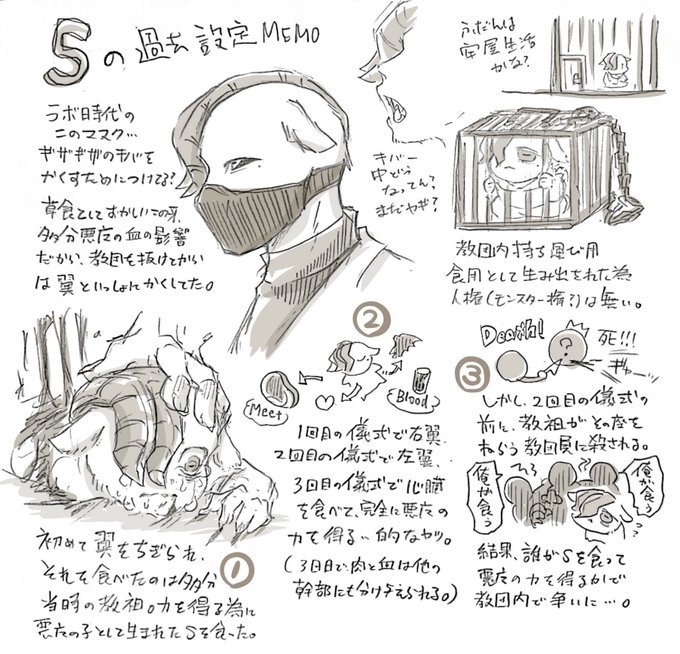 Sの過去設定MEMO
ラボ時代の
このマスク…
ギザギザのキバを
かくすためにつけてる?
草食としてすかいこの牙、
多分悪魔の血の影響
だから、教団を抜けてから
は翼といっしょにかくしてた。
キバー
中どう
なってん?
まだヤギ?
ふだんは
牢屋生活
かな?
教団内持ち運び用
食用として生み出された為
人権(モンスター権?)は無い。
①
初めて翼をちぎられ、
それを食べたのは多分
当時の教祖。力を得る為に
悪魔の子として生まれたSを食った。
②
Meet
Blood
1回目の儀式で右翼、
2回目の儀式で左翼、
3回目の儀式で心臓
を食べて、完全に悪魔の
力を得る…的なヤツ。
(3回目で、肉と血は他の
幹部にも分け与えられる。)
③
Death!
?
死!!!
ギャーッ
しかし、2回目の儀式の
前に、教祖がその座を
ねらう教団員に殺される。
俺が食う
俺が食う
結果、誰がSを食って
悪魔の力を得るかで
教団内で争いに…。